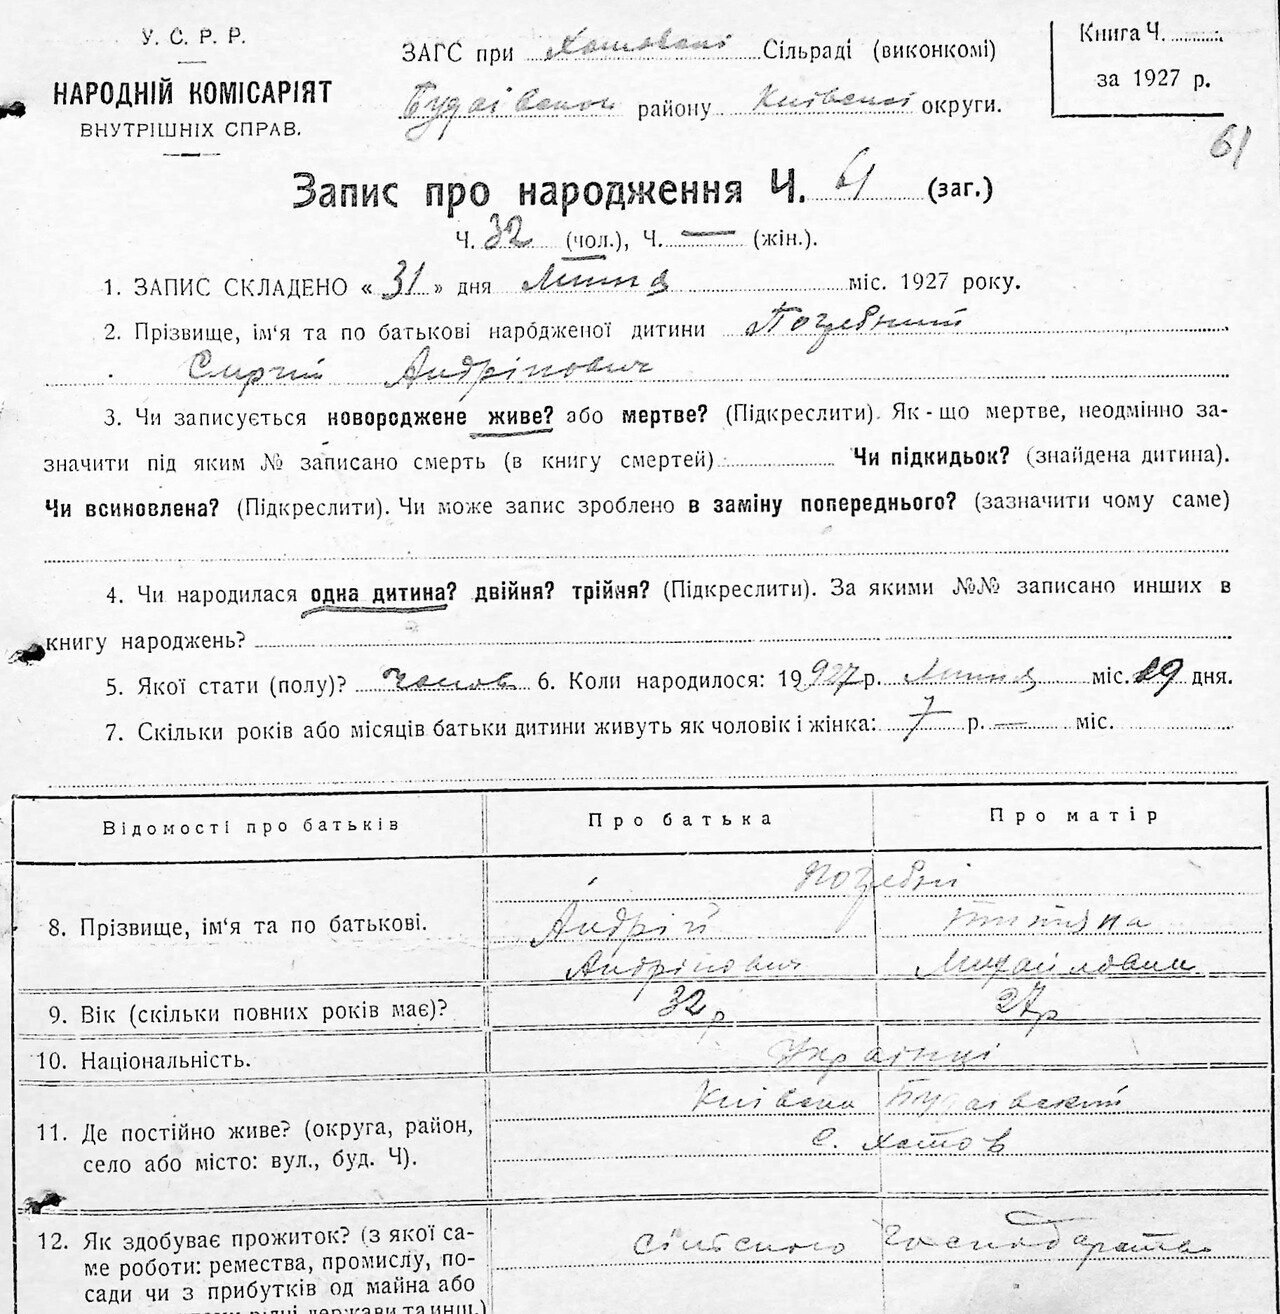 У. С. Р. Р.
НАРОДНІЙ КОМІСАРІЯТ
ВНУТРІШНІХ СПРАВ.
ЗАГС при Хотовскі Сільраді (виконкомі)
Будаівском району Київскої округи.
Книга Ч.
за 1927 р.
61
Запис про народження Ч. 61 (заг.)
Ч. 32 (чол.), Ч. — (жін.).
1. ЗАПИС СКЛАДЕНО « 31 » дня Липня міс. 1927 року.
2. Прізвище, ім'я та по батькові народженої дитини Погребний
Сиргій Андріпович
3. Чи записується новороджене живе? або мертве? (Підкреслити). Як-що мертве, неодмінно за-
значити під яким № записано смерть (в книгу смертей) Чи підкидьок? (знайдена дитина).
Чи всиновлена? (Підкреслити). Чи може запис зроблено в заміну попереднього? (зазначити чому саме)
4. Чи народилася одна дитина? двійня? трійня? (Підкреслити). За якими №№ записано инших в
книгу народжень?
5. Якої стати (полу)? чолов 6. Коли народилося: 19 927 р. Липня міс. 29 дня.
7. Скільки років або місяців батьки дитини живуть як чоловік і жінка: 7 р. — міс.
Відомості про батьків Про батька Про матір
Погребні
8. Прізвище, ім'я та по батькові. Андрій Титяна
Андріпович Михайловна
9. Вік (скільки повних років має)? 32 р 27 р
10. Національність. Українці
Київска Будаівский
11. Де постійно живе? (округа, район,
с. Хотов
село або місто: вул., буд. Ч).
12. Як здобуває прожиток? (з якої са-
сільского Господарства
ме роботи: ремества, промислу, по-
сади чи з прибутків од майна або
держави та инш.)